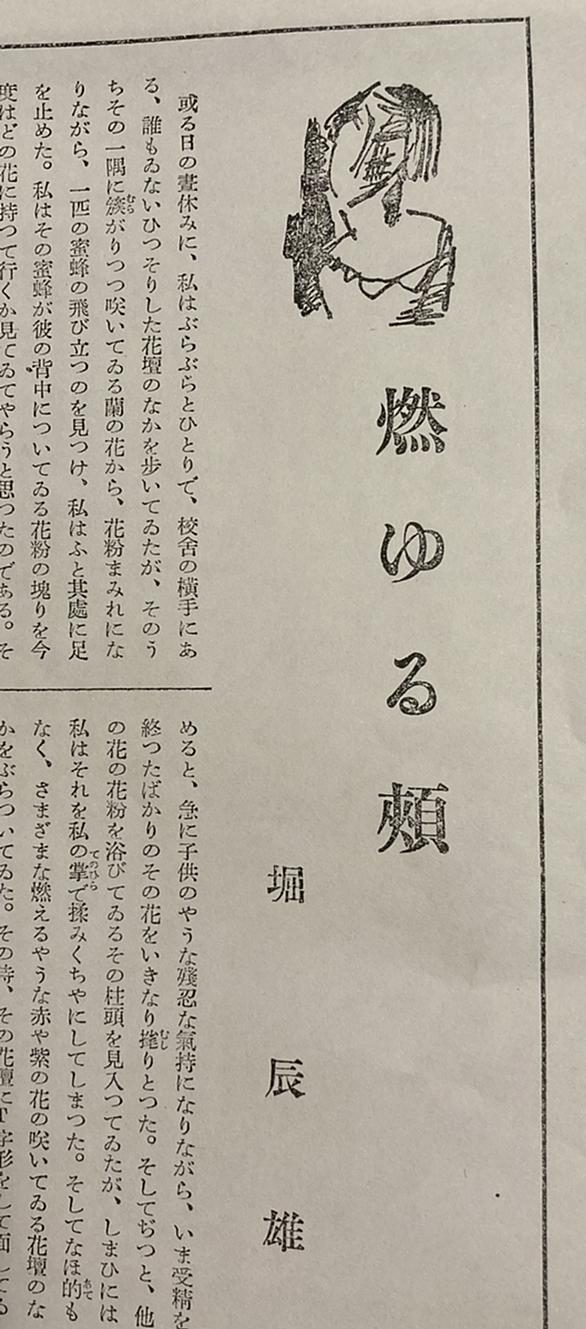 燃ゆる頰
堀辰雄
或る日の晝休みに、私はぶらぶらとひとりで、校舍の橫手にあ
る、誰もゐないひつそりした花壇のなかを步いてゐたが、そのう
ちその一隅に簇がりつつ咲いてゐる蘭の花から、花粉まみれにな
りながら、一匹の蜜蜂の飛び立つのを見つけ、私はふと其處に足
を止めた。私はその蜜蜂が彼の背中についてゐる花粉の塊りを今
度はどの花に持つて行くか見てゐてやらうと思つたのである。そ
めると、急に子供のやうな殘忍な氣持になりながら、いま受精を
終つたばかりのその花をいきなり㧓りとつた。そしてぢつと、他
の花の花粉を浴びてゐるその柱頭を見入つてゐたが、しまひには
私はそれを私の掌で揉みくちやにしてしまつた。そしてなほ的も
なく、さまざまな燃えるやうな赤や紫の花の咲いてゐる花壇のな
かをぶらついてゐた。その時、その花壇にT字形をして面してる